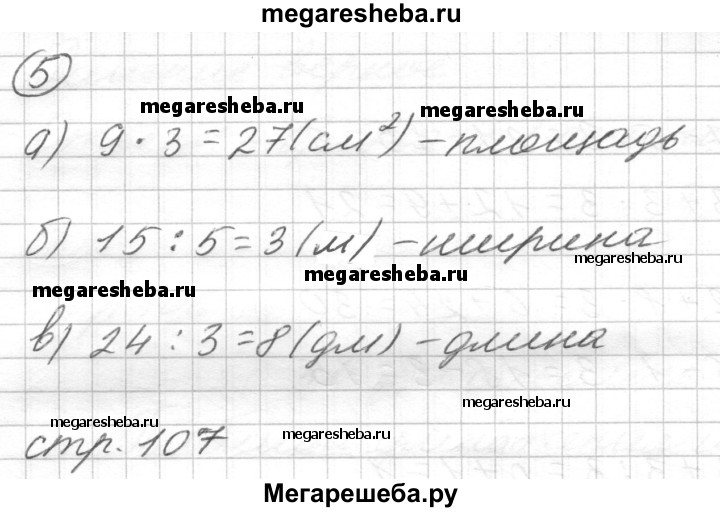 megaresheba.ru
5
megaresheba.ru megaresheba.ru
а) 9 · 3 = 27 (см²) – площадь
б) 15 : 5 = 3 (м) – ширина
megaresheba.ru
megaresheba.ru
megaresheba.ru
в) 24 : 3 = 8 (дм) – длина
megaresheba.ru
megaresheba.ru
стр. 107
megaresheba.ru
Мегарешеба.ру